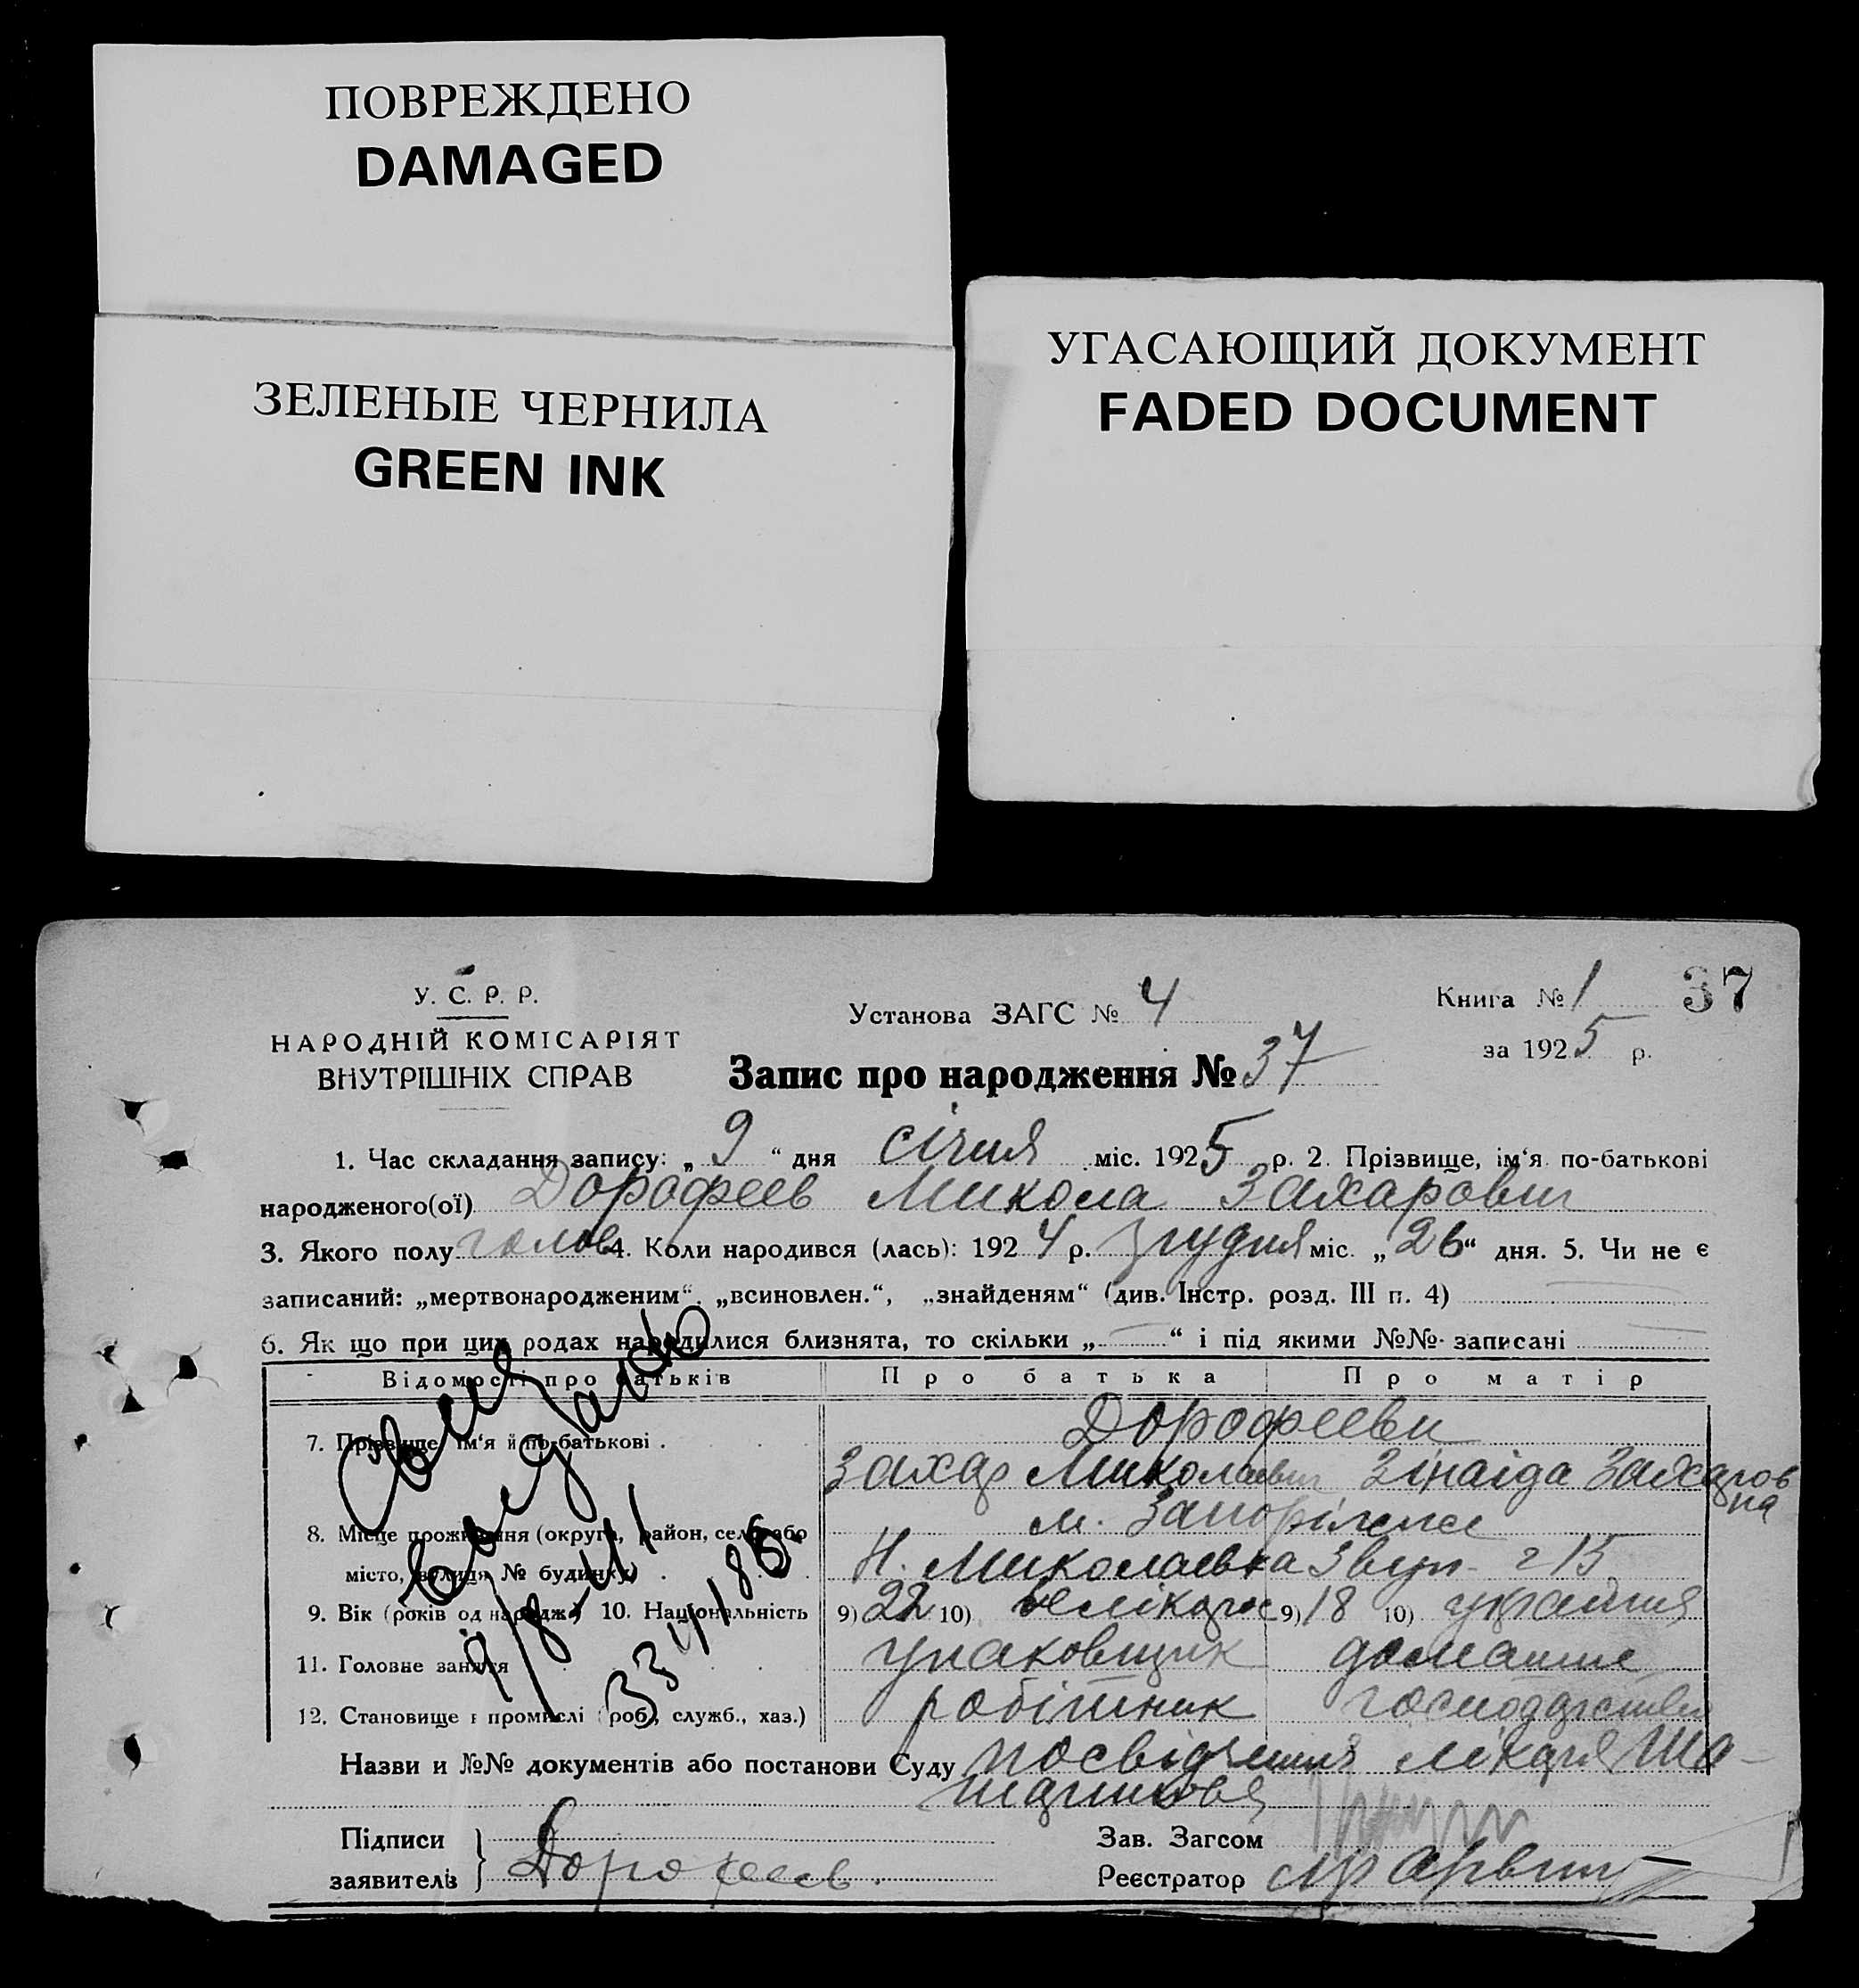 ПОВРЕЖДЕНО
DAMAGED
ЗЕЛЕНЫЕ ЧЕРНИЛА
GREEN INK
УГАСАЮЩИЙ ДОКУМЕНТ
FADED DOCUMENT
У. С. Р. Р.
НАРОДНІЙ КОМІСАРІЯТ
ВНУТРІШНІХ СПРАВ
Установа ЗАГС № 4
Книга № 1 37
за 1925 р.
Запис про народження № 37
1. Час складання запису: „ 9 “ дня січня міс. 1925 р. 2. Прізвище, ім‘я по-батькові
народженого(ої) Дорофеев Микола Захарович
3. Якого полу чолов 4. Коли народився (лась): 1924 р. грудня міс. „26“ дня. 5. Чи не є
записаний: „мертвонародженим“, „всиновлен.“, „знайденям“ (див. Інстр. розд. III п. 4)
6. Як що при цих родах народилися близнята, то скільки „ “ і під якими №№ записані
Відомості про батьків Про батька Про матір
Дорофееви
7. Прізвище, ім‘я й по-батькові .
Захар Миколаевич Зінаіда Захаровна
м. Запоріжже
8. Місце проживання (округа, район, село або
місто, вулиця № будинку) . Н. Миколаевка 3 вул. 215
9. Вік (років од народж.) 10. Національність 9) 22 10) велікорос 9) 18 10) украінка
11. Головне заняття упаковщик домашне
12. Становище в промислі (роб., служб., хаз.) робітник господарство
Назви и №№ документів або постанови Суду посвідчення лікаря
Підписи
заявителів Дорофеев.
Зав. Загсом
Реєстратор